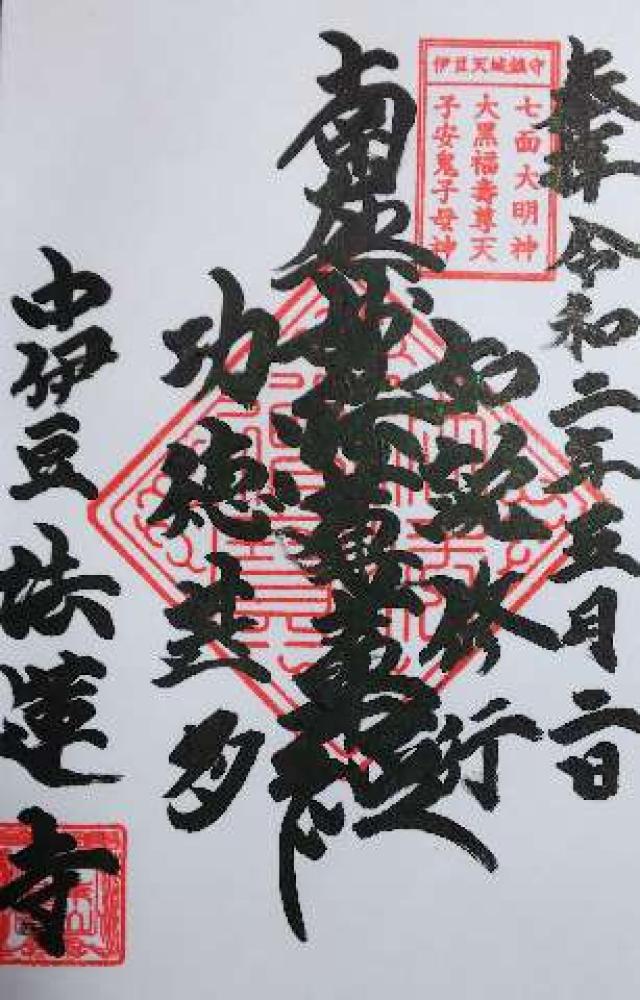 奉拝 令和二年五月二日
伊豆天城鎮守
七面大明神
大黒福壽尊天
子安鬼子母神
如説修行
南無妙法蓮華経
功徳甚多
中伊豆 法蓮寺